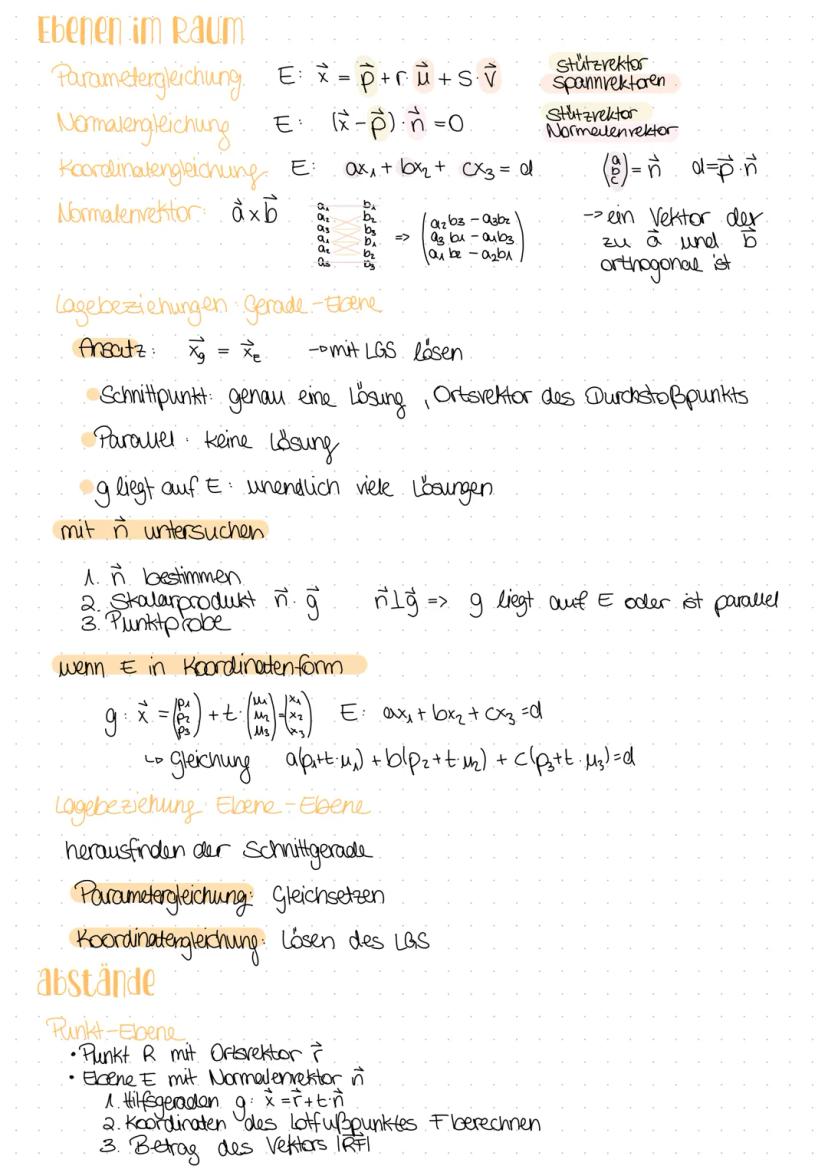 Ebenen im Raum
Parametergleichung E: x⃗ = p⃗ + r · u⃗ + s · v⃗ Stützvektor
Spannvektoren
Normalengleichung E: (x⃗ - p⃗) · n⃗ = 0 Stützvektor
Normalenvektor
Koordinatengleichung E: ax₁ + bx₂ + cx₃ = d (a b c) = n⃗ d = p⃗ · n⃗
Normalenvektor: a⃗ x b⃗
a₁ b₁
a₂ b₂
a₃ b₃
a₁ b₁
a₂ b₂
a₃ b₃
=> (a₂b₃ - a₃b₂
a₃b₁ - a₁b₃
a₁b₂ - a₂b₁)
-> ein Vektor der
zu a⃗ und b⃗
orthogonal ist
Lagebeziehungen Gerade-Ebene
Ansatz: x⃗g = x⃗E -> mit LGS lösen
Schnittpunkt: genau eine Lösung, Ortsvektor des Durchstoßpunkts
Parallel: keine Lösung
g liegt auf E: unendlich viele Lösungen
mit n⃗ untersuchen
1. n⃗ bestimmen
2. Skalarprodukt n⃗ · g⃗ n⃗⊥g⃗ => g liegt auf E oder ist parallel
3. Punktprobe
wenn E in Koordinatenform
g: x⃗ = (p₁ p₂ p₃) + t · (u₁ u₂ u₃) = (x₁ x₂ x₃) E: ax₁ + bx₂ + cx₃ = d
↳ Gleichung a(p₁+t·u₁) + b(p₂+t·u₂) + c(p₃+t·u₃) = d
Lagebeziehung Ebene-Ebene
herausfinden der Schnittgerade
Parametergleichung: Gleichsetzen
Koordinatengleichung: Lösen des LGS
abstände
Punkt-Ebene
• Punkt R mit Ortsvektor r⃗
• Ebene E mit Normalenvektor n⃗
1. Hilfsgeraden g: x⃗ = r⃗ + t · n⃗
2. Koordinaten des Lotfußpunktes F berechnen
3. Betrag des Vektors |RF|